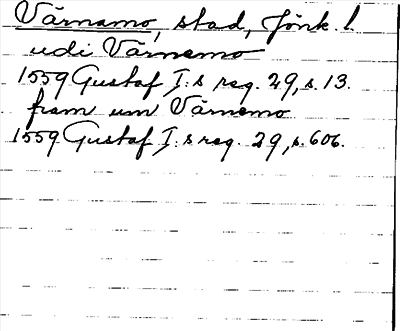 Värnamo, stad, Jönk. l.
udi Värnemo
1559 Gustaf I:s reg. 29, s. 13.
fram um Värnemo
1559 Gustaf I:s reg. 29, s. 606.